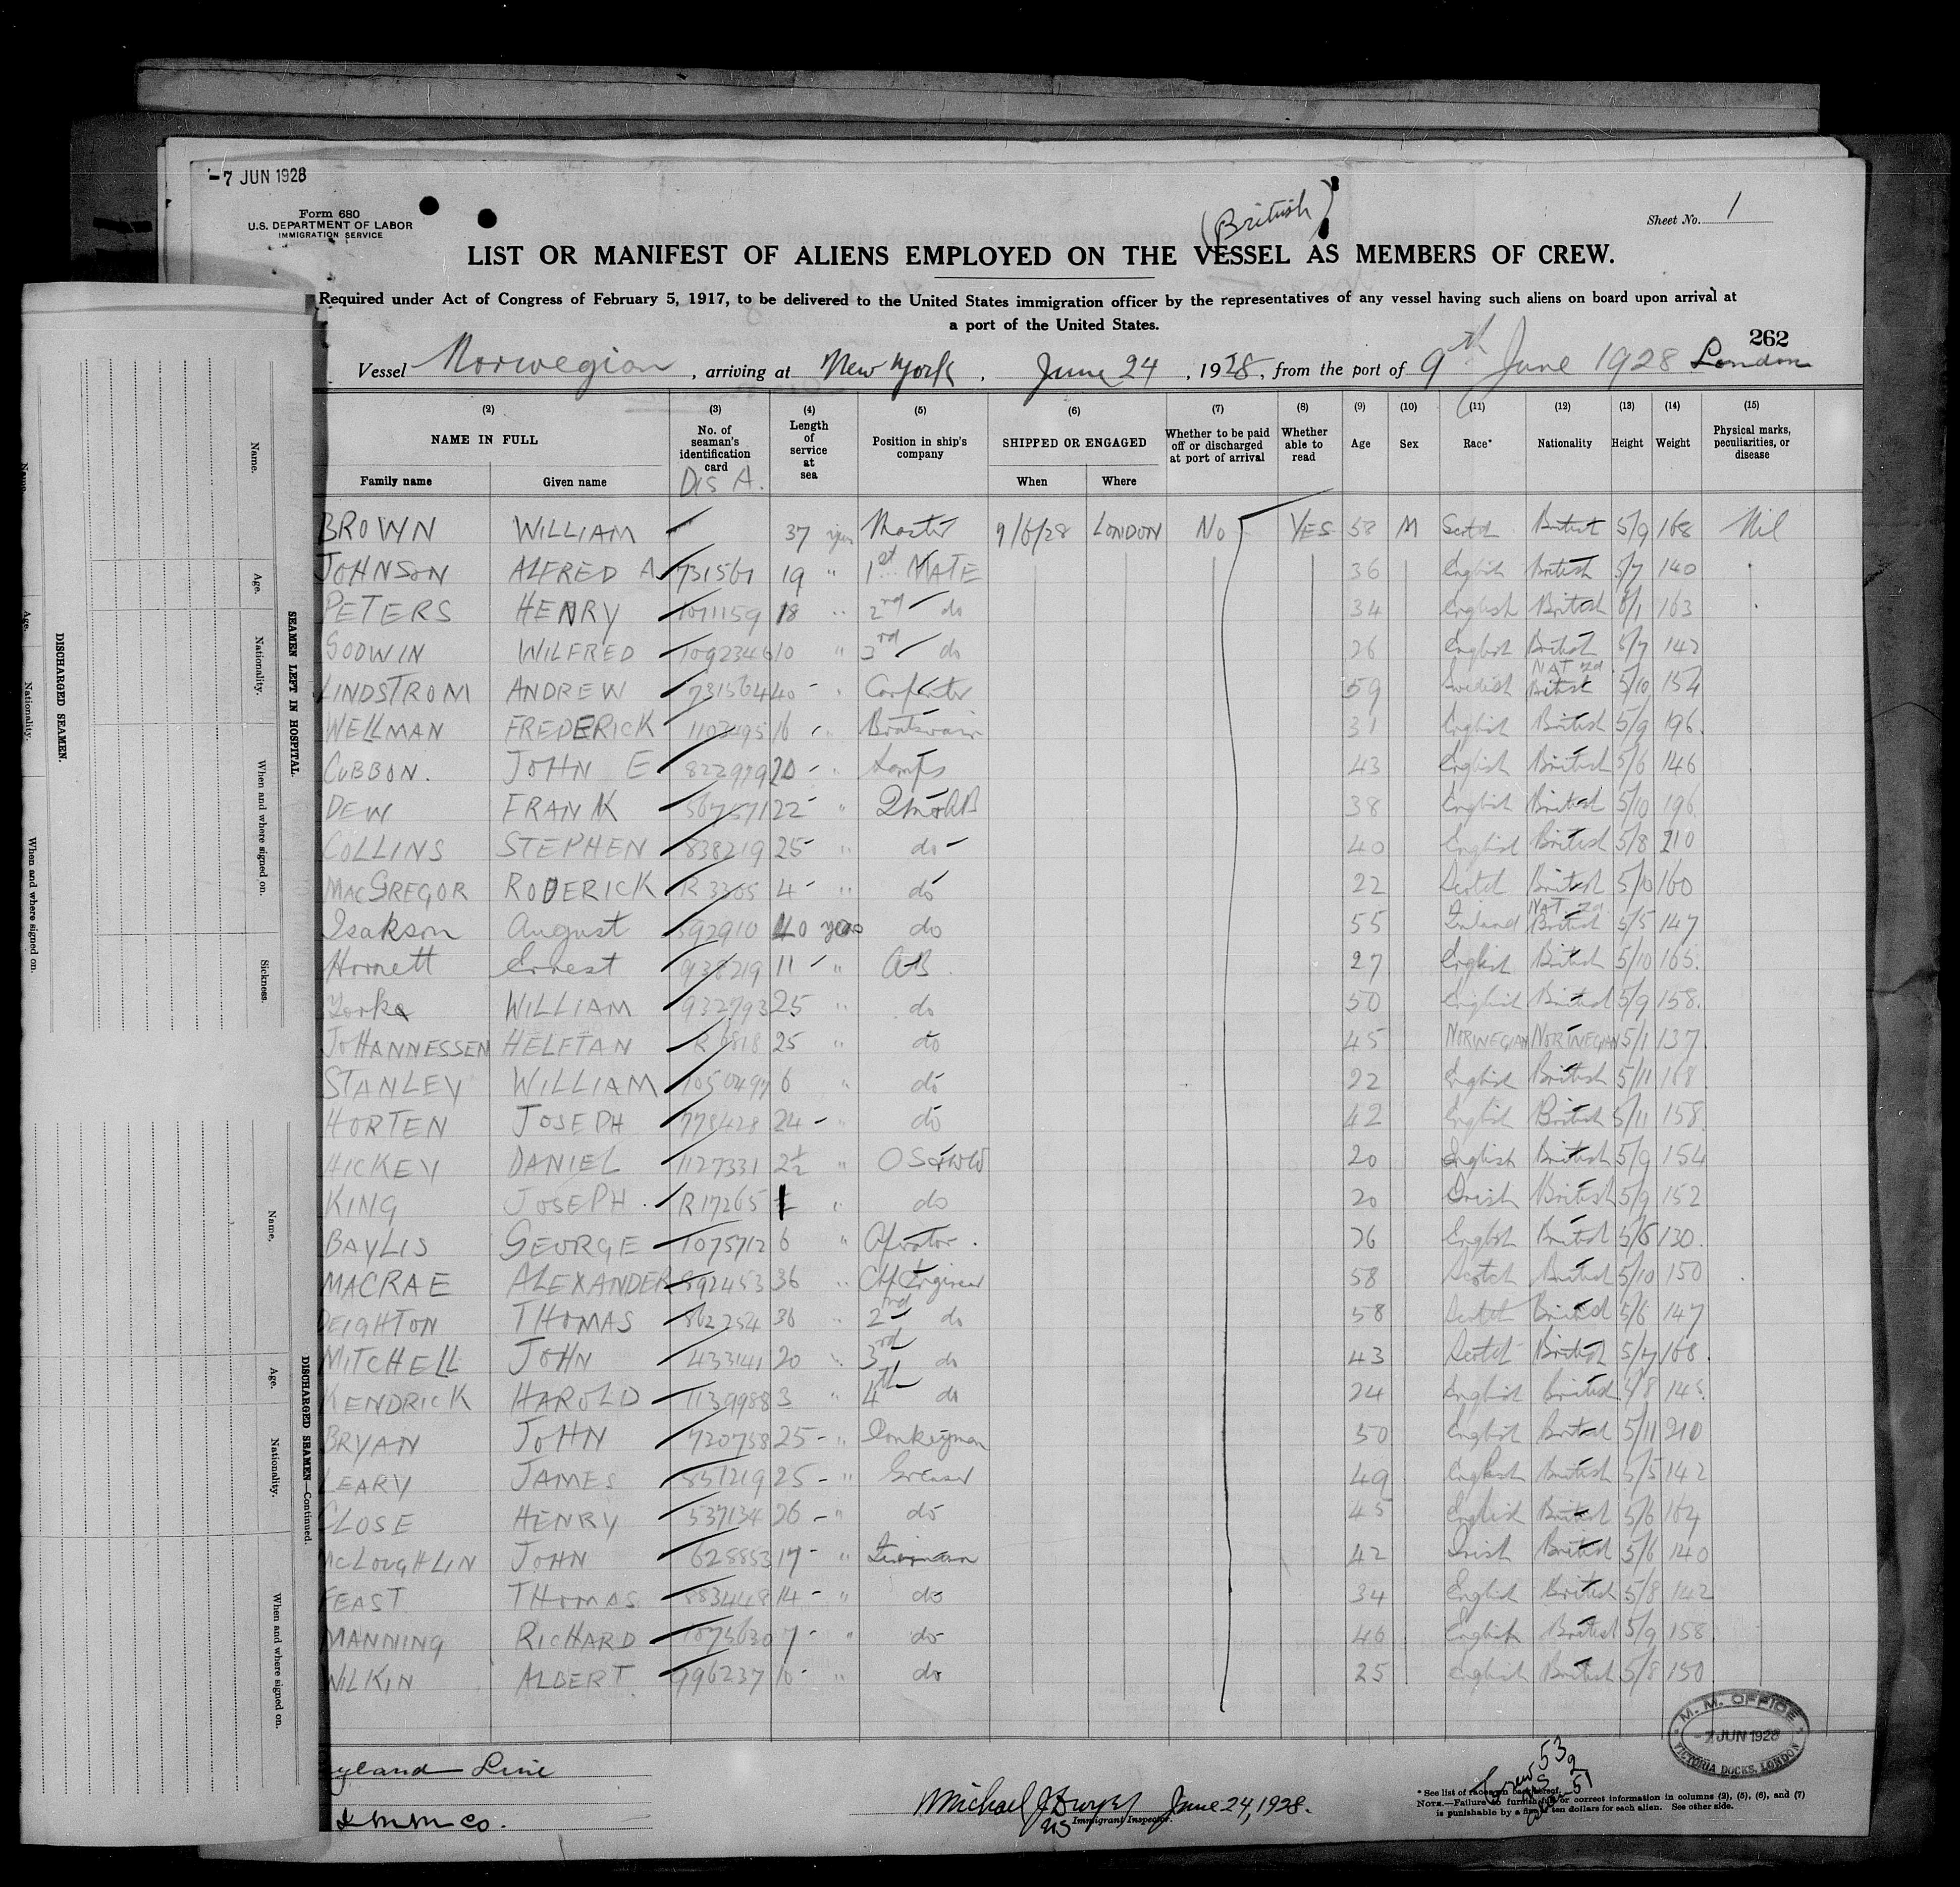 -7 JUN 1928
Form 680
U.S. DEPARTMENT OF LABOR
IMMIGRATION SERVICE
(British)
Sheet No. 1
LIST OR MANIFEST OF ALIENS EMPLOYED ON THE VESSEL AS MEMBERS OF CREW.
Required under Act of Congress of February 5, 1917, to be delivered to the United States immigration officer by the representatives of any vessel having such aliens on board upon arrival at
a port of the United States.
262
Vessel Norwegian, arriving at New York, June 24, 1928, from the port of 9th June 1928 London
(2) (3) (4) (5) (6) (7) (8) (9) (10) (11) (12) (13) (14) (15)
NAME IN FULL No. of seaman's identification card Length of service at sea Position in ship's company SHIPPED OR ENGAGED Whether to be paid off or discharged at port of arrival Whether able to read Age Sex Race* Nationality Height Weight Physical marks, peculiarities, or disease
Family name Given name Dis A. When Where
BROWN WILLIAM 37 yrs Master 9/6/28 LONDON No YES 58 M Scotch British 5/9 168 Nil
JOHNSON ALFRED A 731561 19 " 1st MATE 36 English British 5/7 140
PETERS HENRY 1071159 18 " 2nd do 34 English British 6/1 163
GODWIN WILFRED 1092346 10 " 3rd do 26 English British 5/7 142
LINDSTROM ANDREW 731564 40 " Carpenter 59 Swedish NAT zd British 5/10 154
WELLMAN FREDERICK 1103495 16 " Boatswain 31 English British 5/9 196
CUBBON. JOHN E 822979 20 " Lamps 43 English British 5/6 146
DEW FRANK 567571 22 " 38 English British 5/10 196
COLLINS STEPHEN 838219 25 " do 40 English British 5/8 210
MACGREGOR RODERICK R 3365 4 " do 22 Scotch British 5/10 160
Isakson August 592910 40 years do 55 Finland NAT zd British 5/5 147
Hornett Ernest 938219 11 " AB 27 English British 5/10 165
Yorke WILLIAM 932793 25 " do 50 English British 5/9 158
JOHANNESSEN HELFTAN R 6818 25 " do 45 NORWEGIAN NORWEGIAN 5/1 137
STANLEY WILLIAM 1050497 6 " do 22 English British 5/11 168
HORTEN JOSEPH 778428 24 " do 42 English British 5/11 158
HICKEY DANIEL 1127331 2½ " 20 English British 5/9 154
KING JOSEPH R17265 " do 20 Irish British 5/9 152
BAYLIS GEORGE 1075712 6 " Operator. 26 English British 5/6 130
MACRAE ALEXANDER 892453 36 " Chf Engineer 58 Scotch British 5/10 150
DEIGHTON THOMAS 862254 36 " 2nd do 58 Scotch British 5/6 147
MITCHELL JOHN 433141 20 " 3rd do 43 Scotch British 5/7 168
KENDRICK HAROLD 1139988 3 " 4th do 24 English British 5/8 145
BRYAN JOHN 720758 25 " Donkeyman 50 English British 5/11 210
LEARY JAMES 851219 25 " Greaser 49 English British 5/5 142
CLOSE HENRY 537134 26 " do 45 English British 5/6 164
McLOUGHLIN JOHN 628853 17 " Fireman 42 Irish British 5/6 140
FEAST THOMAS 883448 14 " do 34 English British 5/8 142
MANNING RICHARD 1075630 7 " do 46 English British 5/9 158
WILKIN ALBERT 996237 10 " do 25 English British 5/8 150
M. M. OFFICE
7 JUN 1928
VICTORIA DOCKS, LONDON
eyland Line
I m m co.
Michael J Dwyer June 24, 1928.
Immigrant Inspector.
Crew 53
US 2
51
* See list of races on back hereof.
NOTE.—Failure to furnish full or correct information in columns (2), (5), (6), and (7)
is punishable by a fine of ten dollars for each alien. See other side.
SEAMEN LEFT IN HOSPITAL.
Name. Age. Nationality. When and where signed on. Sickness.
DISCHARGED SEAMEN.
Name. Age. Nationality. When and where signed on.
DISCHARGED SEAMEN—Continued.
Name. Age. Nationality. When and where signed on.